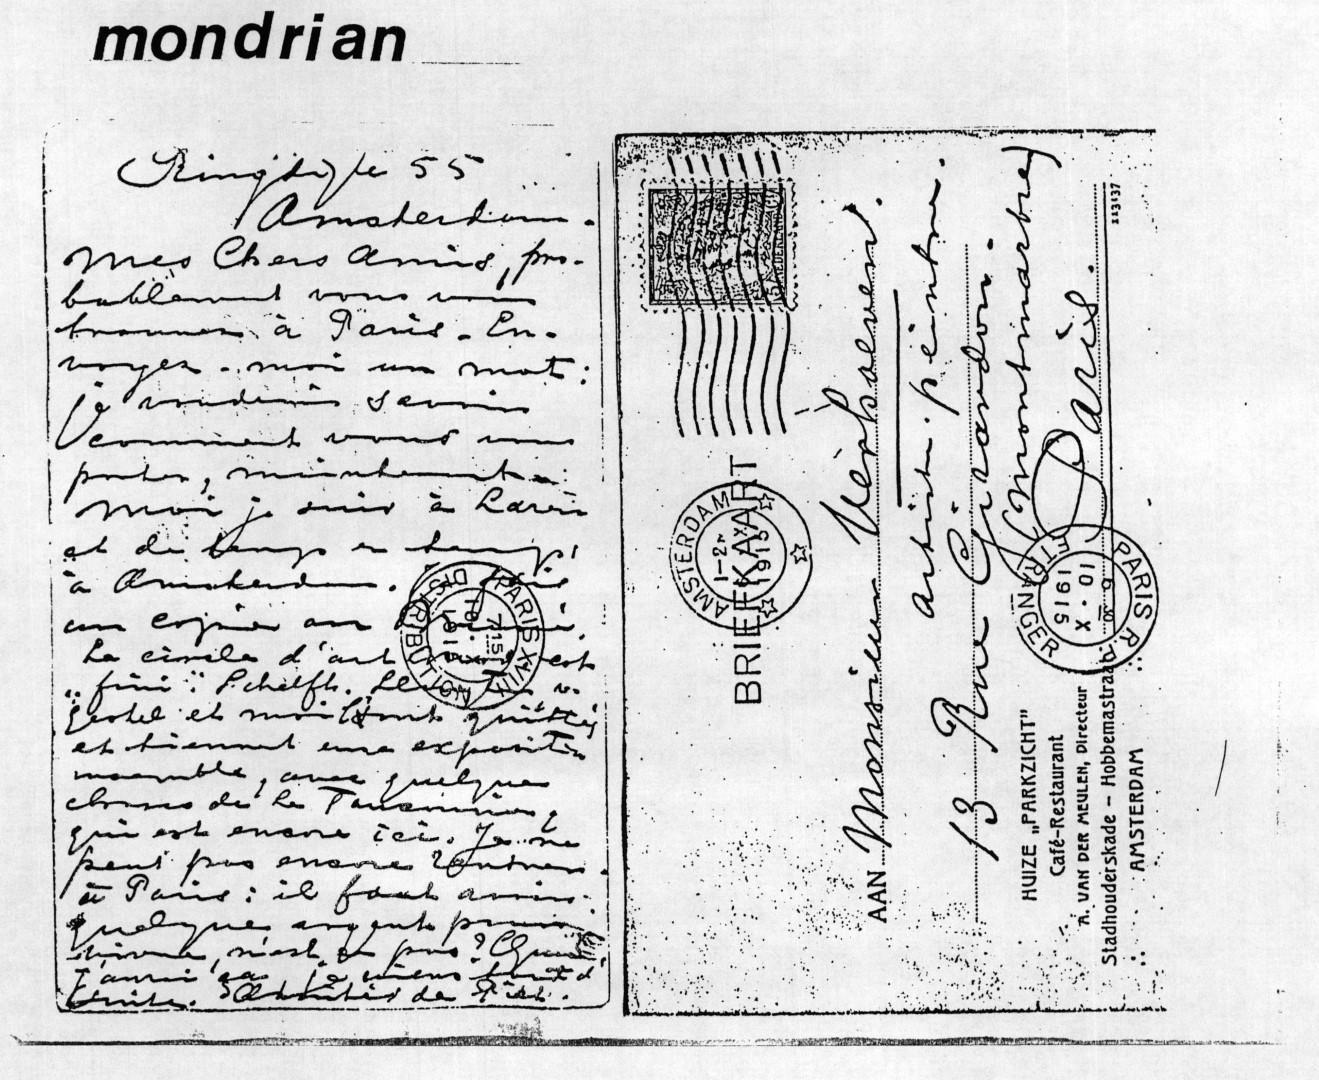 mondrian
Ringdijk 55
Amsterdam.
Mes Chers Amis, pro-
bablement vous vous
trouvez à Paris. En-
voyez-moi un mot:
je voudrais savoir
comment vous vous
portez, maintenant.
Moi je suis à Laren
et de temps en temps
à Amsterdam.
un copier au
Le circle d'art est
"fini": Schelfh. Le
gestel et moi sont quittés
et tiennent une exposition
ensemble, avec quelques
choses de Le Fauconnier,
qui est encore ici. Je ne
peut pas encore rentrer
à Paris: il faut avoir
quelque argent pour
vivre, n'est ce pas? Quand
j'aurai ça je viens tout d'
suite. Amitiés de Piet.
PARIS XVIII
DISTRIBUTION
7 15
BRIEFKAART
AMSTERDAM
1-2 N
1915
AAN Monsieur Verhoeven.
artiste. peintre.
13 Rue Girardon.
(Montmartre)
Paris.
PARIS R.P.
ETRANGER
6 30
10 X
1915
HUIZE „PARKZICHT"
Café-Restaurant
A. VAN DER MEULEN, Directeur
Stadhouderskade – Hobbemastraat
AMSTERDAM
223137